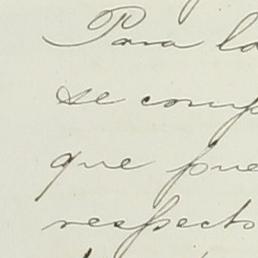 Para la
se comp
que pue
respecto